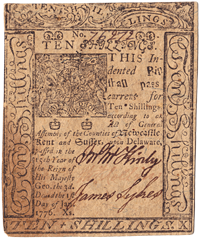 SHILLINGS
No. 76,972
TEN SHILLINGS.
THIS In-
dented Bill
shall pass
current for
Ten Shillings,
according to an
Act of General
Assembly of the Counties of Newcastle
Kent and Sussex, upon Delaware,
passed in the
15th Year of
the Reign of
His Majesty
Geo. the 3d.
Dated the 1st
Day of Jan.
1776.
James Sykes
TEN SHILLINGS